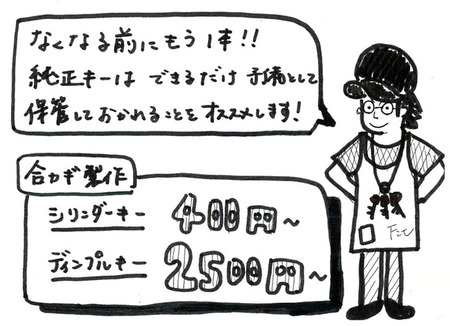 なくなる前にもう1本!!
純正キーは できるだけ 予備として
保管しておかれることをオススメします!
合カギ製作
シリンダーキー 400円~
ディンプルキー 2500円~